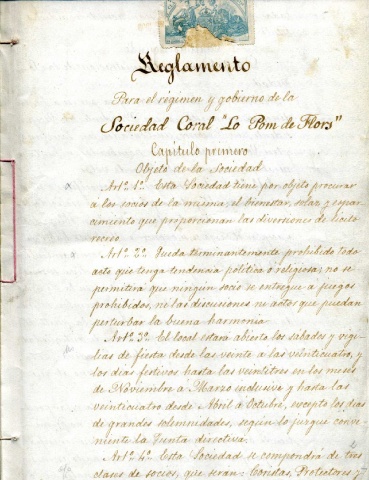 Reglamento
Para el régimen y gobierno de la
Sociedad Coral "Lo Pom de Flors"
Capitulo primero
Objeto de la Sociedad
Artº 1º Esta Sociedad tiene por objeto procurar
á los socios de la misma, el bienestar, solaz y espar-
cimiento que proporcionan las diversiones de lícito
recreo.
Artº 2º Queda terminantemente prohibido todo
acto que tenga tendencia política ó religiosa; no se
permitirá que ningún socio se entregue a juegos
prohibidos, ni las discusiones ni actos que puedan
perturbar la buena harmonia.
Artº 3º El local estará abierto los sábados y vigi-
lias de fiesta desde las veinte a las veinticuatro, y
los dias festivos hasta las veintitres en los meses
de Noviembre a Marzo inclusive y hasta las
veinticuatro desde Abril a Octubre, excepto los dias
de grandes solemnidades, según lo juzgue conve-
niente la Junta directiva.
Artº 4º Esta Sociedad se compondrá de tres
clases de socios, que serán: Coristas, Protectores y